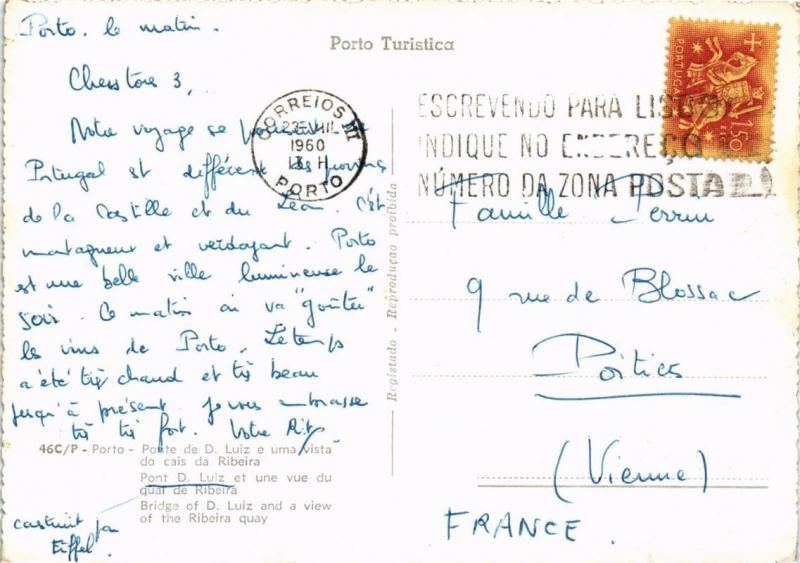 Porto. le matin.
Porto Turistica
Chers tous 3,
Notre voyage se poursuit. Le
Portugal est différent des provinces
de la Castille et du Léon. C'est
montagneux et verdoyant. Porto
est une belle ville lumineuse le
soir. Ce matin on va "goûter"
les vins de Porto. Le temps
a été très chaud et très beau
jusqu'à présent. Je vous embrasse
très très fort. Votre
46C/P - Porto - Ponte de D. Luiz e uma vista
do cais da Ribeira
Pont D. Luiz et une vue du
quai de Ribeira
Bridge of D. Luiz and a view
of the Ribeira quay
construit par
Eiffel.
CORREIOS
1960
13 H
PORTO
ESCREVENDO PARA
INDIQUE NO ENDEREÇO
NÚMERO DA ZONA POSTAL
PORTUGAL
1$50
Registado - Reprodução proibida
Famille Perrin
9 rue de Blossac
Poitiers
(Vienne)
FRANCE.